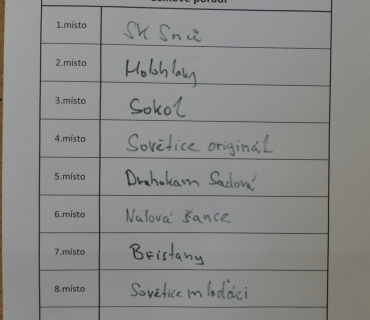 1.místo SK Snů
2.místo Hobhlavy
3.místo Sokol
4.místo Sovětice originál
5.místo Drahokam Sadová
6.místo Nulová šance
7.místo Břišťany
8.místo Sovětice mlaďáci